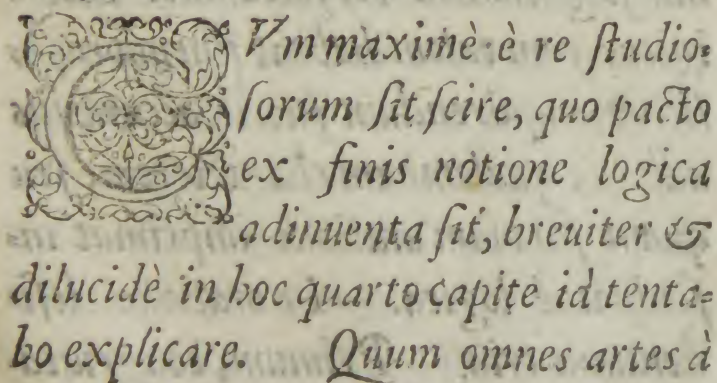 CVm maximè è re ſtudio-
ſorum ſit ſcire, quo pacto
ex finis notione logica
adinuenta ſit, breuiter &
dilucidè in hoc quarto capite id tenta-
bo explicare. Quum omnes artes à